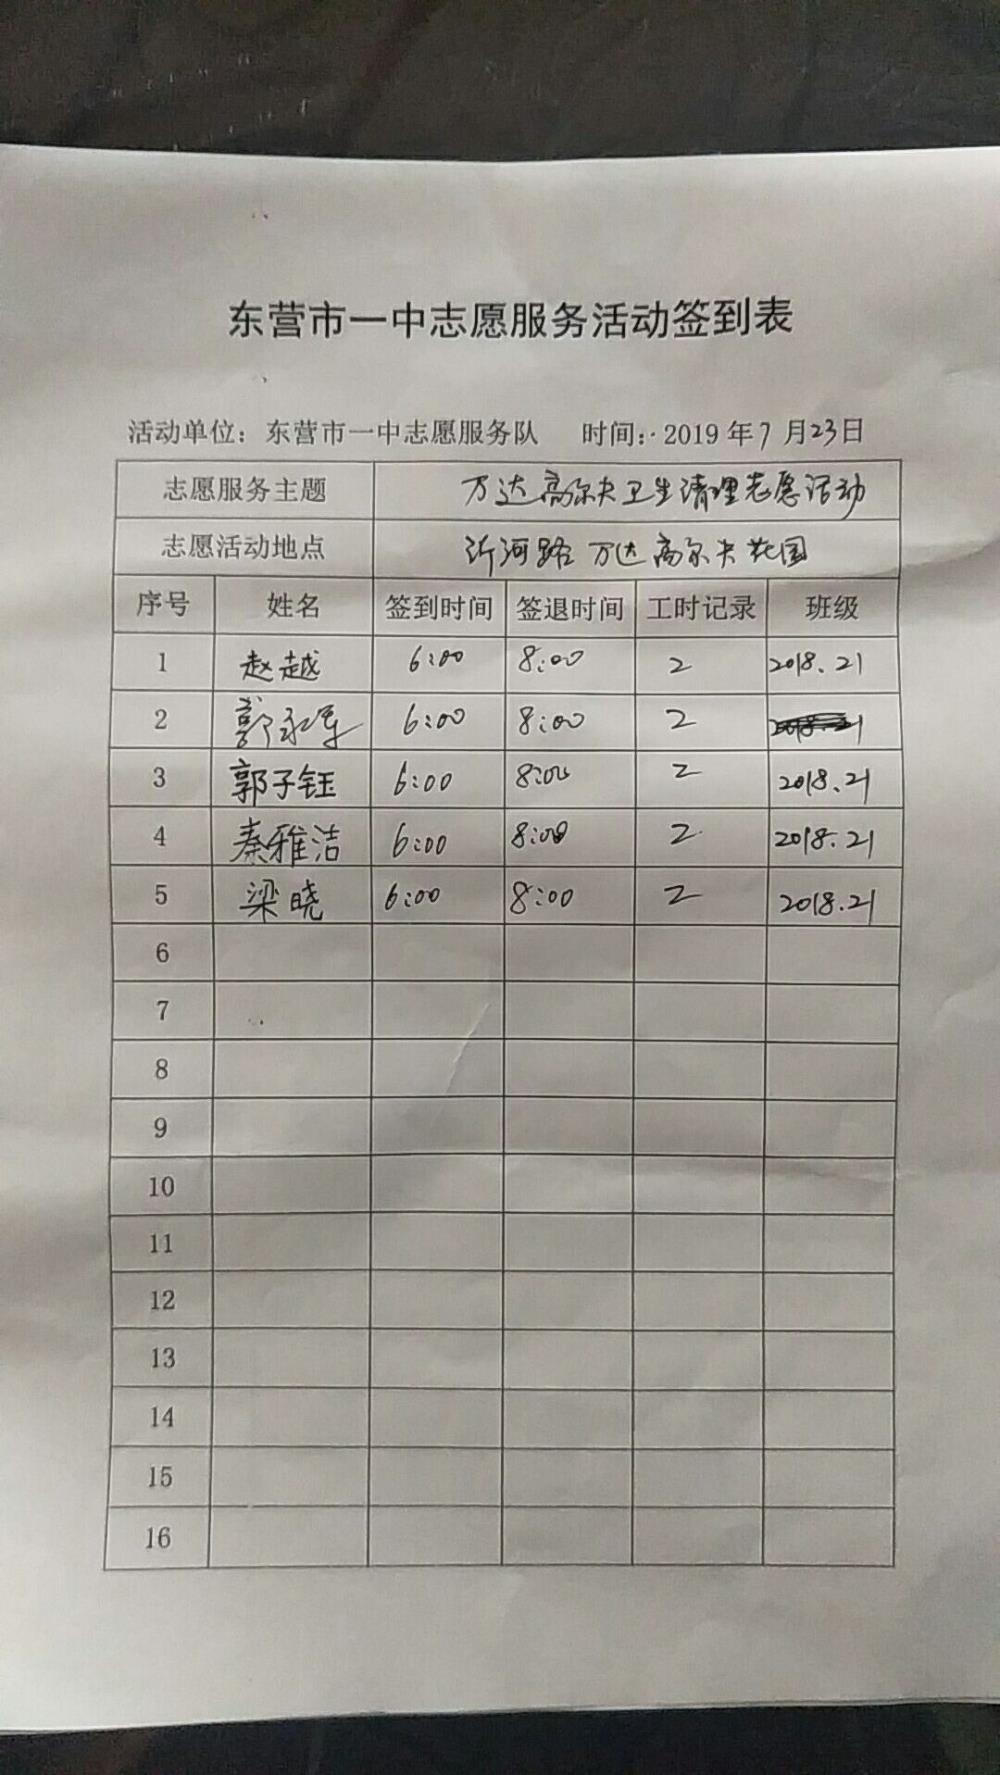 东营市一中志愿服务活动签到表
活动单位：东营市一中志愿服务队 时间：2019年7月23日
志愿服务主题 万达高尔夫卫生清理志愿活动
志愿活动地点 沂河路万达高尔夫花园
序号 姓名 签到时间 签退时间 工时记录 班级
1 赵越 6:00 8:00 2 2018.21
2 郭永军 6:00 8:00 2
3 郭子钰 6:00 8:00 2 2018.21
4 秦雅洁 6:00 8:00 2 2018.21
5 梁晓 6:00 8:00 2 2018.21
6
7
8
9
10
11
12
13
14
15
16